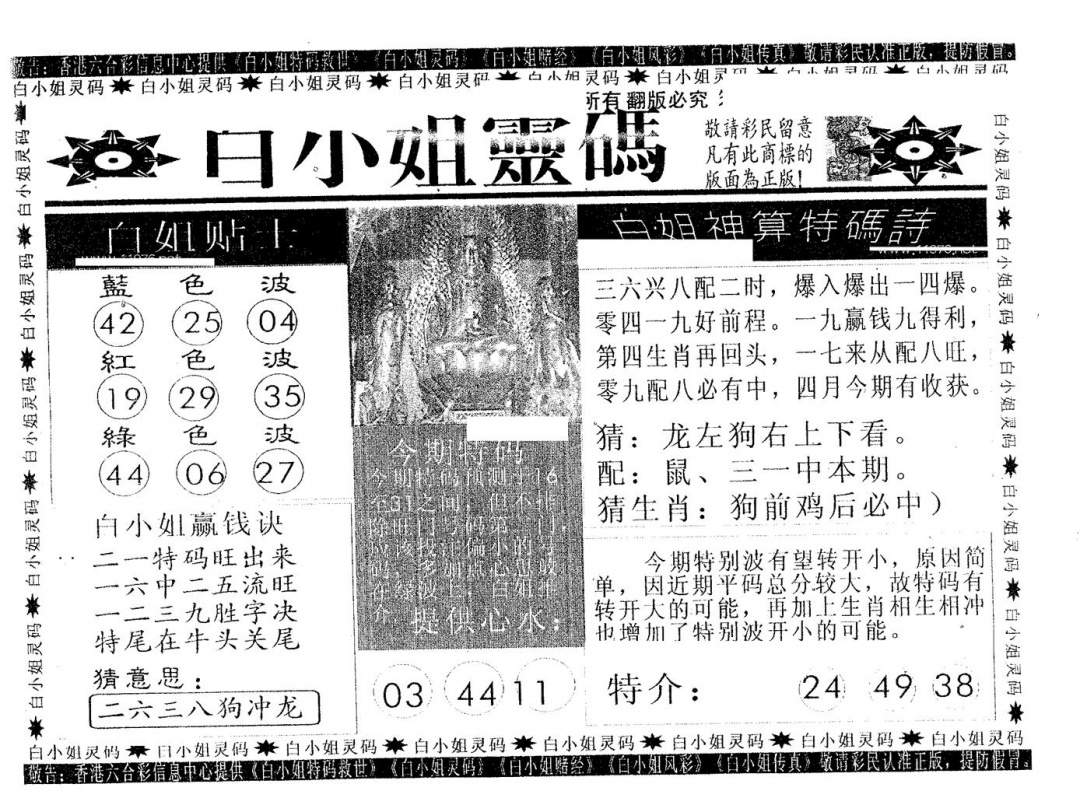 敬告：香港六合彩信息中心提供《白小姐特码救世》《白小姐灵码》《白小姐赌经》《白小姐风彩》《白小姐传真》敬请彩民认准正版，提防假冒。
白小姐灵码 白小姐灵码 白小姐灵码 白小姐灵码 白小姐灵码 白小姐灵码
所有 翻版必究
白小姐靈碼
敬請彩民留意
凡有此商標的
版面為正版！
白姐贴士
藍色波
42 25 04
紅色波
19 29 35
綠色波
44 06 27
白小姐赢钱诀
二一特码旺出来
一六中二五流旺
一二三九胜字决
特尾在牛头关尾
猜意思：
二六三八狗冲龙
今期特码
提供心水：
03 44 11
白姐神算特碼詩
三六兴八配二时，爆入爆出一四爆。
零四一九好前程。一九赢钱九得利，
第四生肖再回头，一七来从配八旺，
零九配八必有中，四月今期有收获。
猜：龙左狗右上下看。
配：鼠、三一中本期。
猜生肖：狗前鸡后必中）
今期特别波有望转开小，原因简
单，因近期平码总分较大，故特码有
转开大的可能，再加上生肖相生相冲
也增加了特别波开小的可能。
特介： 24 49 38
白小姐灵码 白小姐灵码 白小姐灵码 白小姐灵码 白小姐灵码 白小姐灵码 白小姐灵码 白小姐灵码
敬告：香港六合彩信息中心提供《白小姐特码救世》《白小姐灵码》《白小姐赌经》《白小姐风彩》《白小姐传真》敬请彩民认准正版，提防假冒。
白小姐灵码 白小姐灵码 白小姐灵码 白小姐灵码 白小姐灵码
白小姐灵码 白小姐灵码 白小姐灵码 白小姐灵码 白小姐灵码